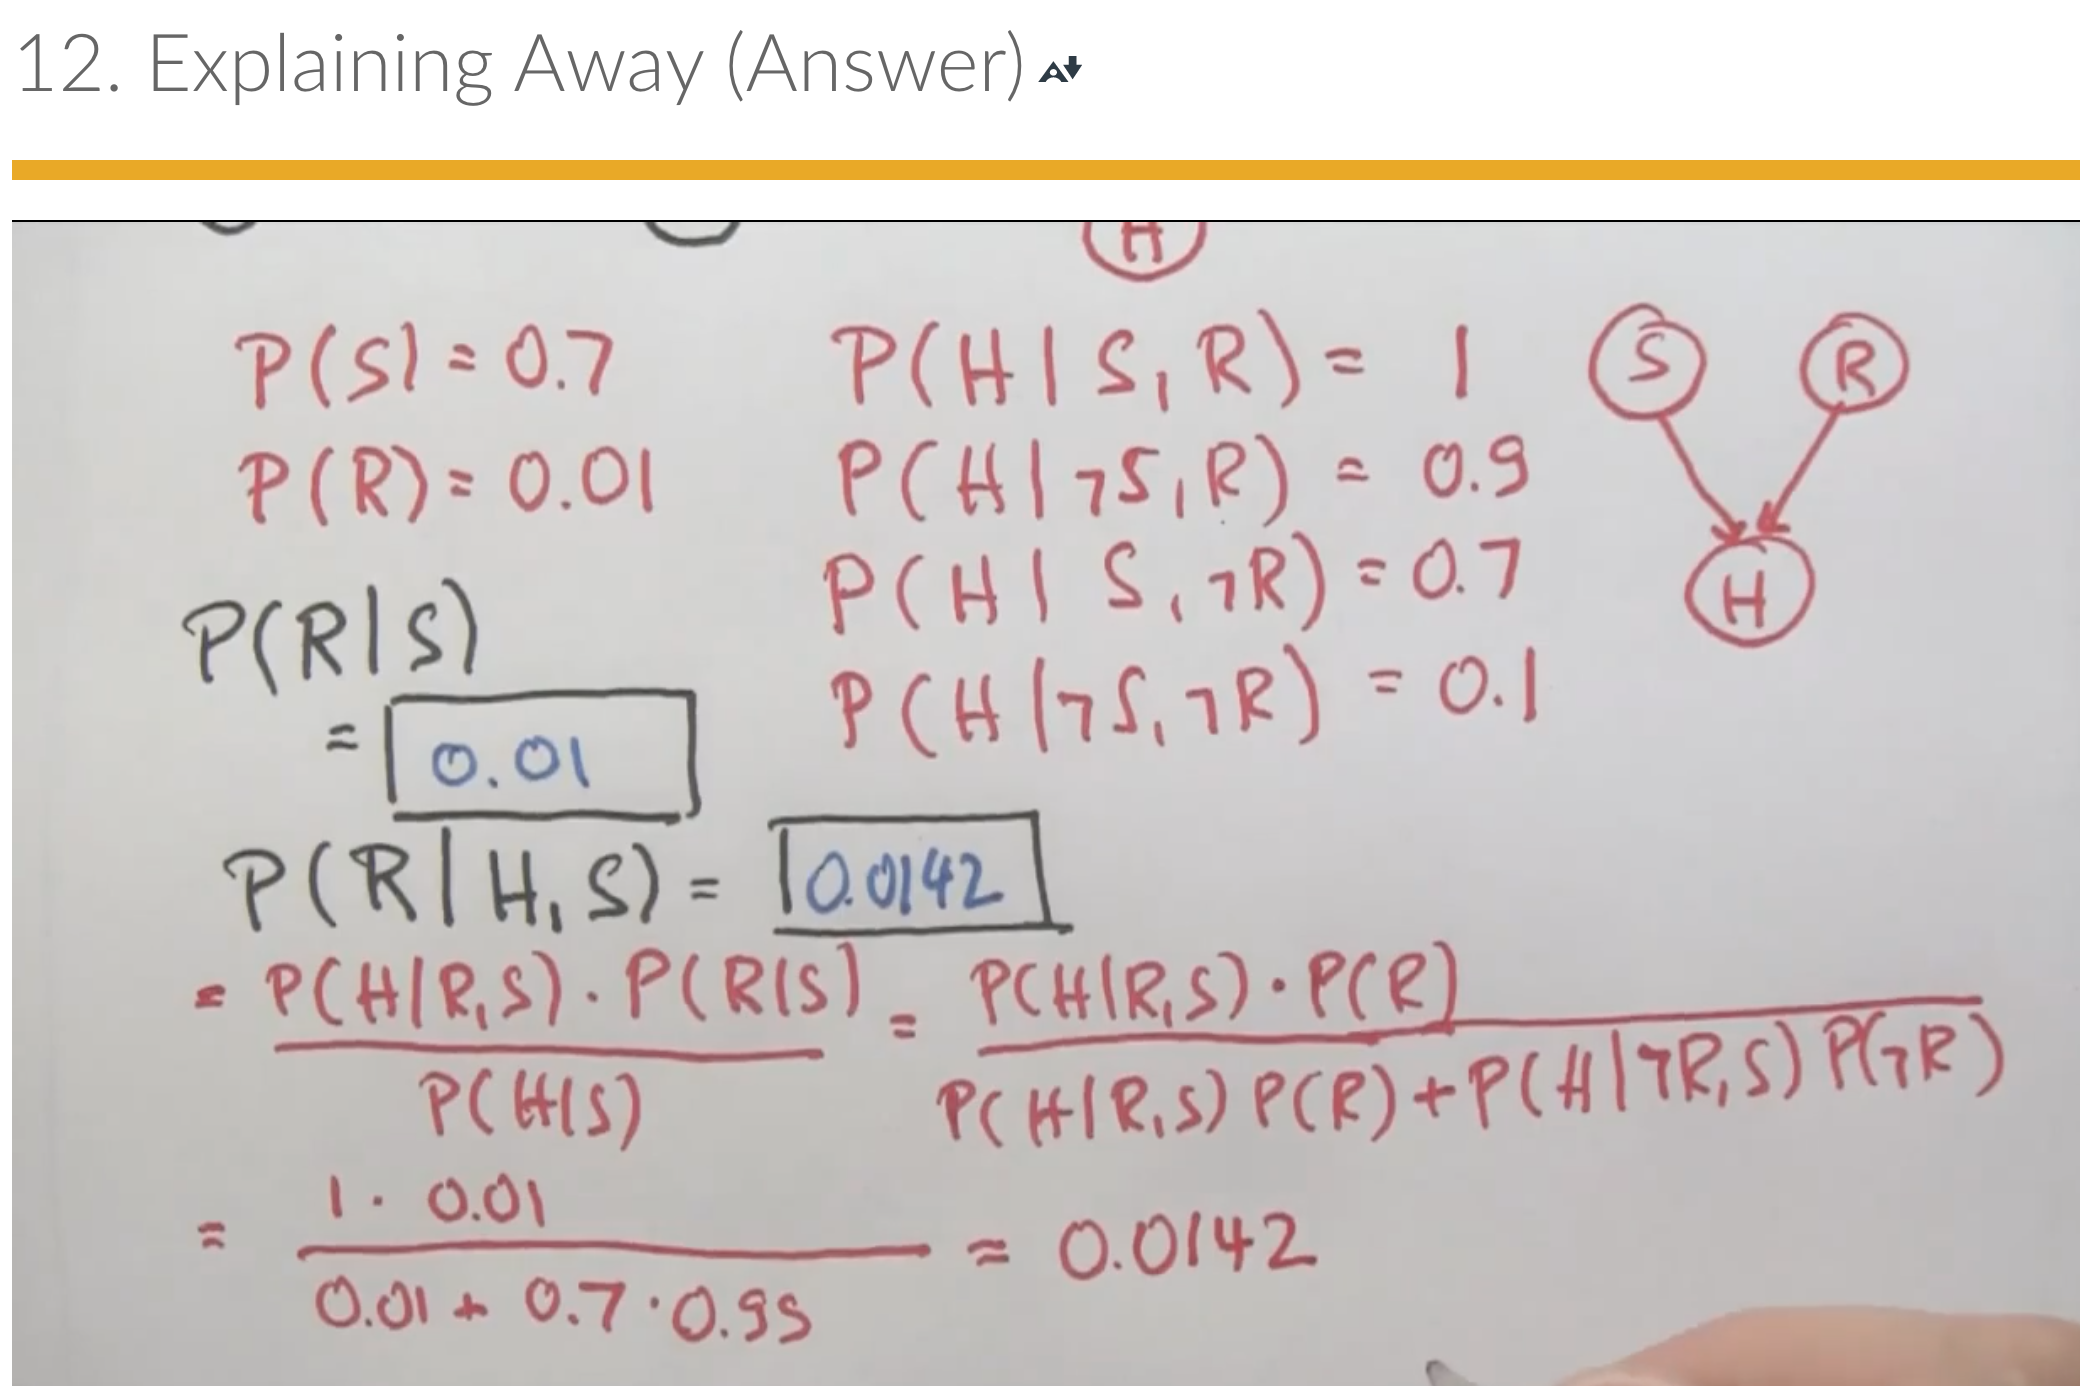 12. Explaining Away (Answer)
H
P(S) = 0.7
P(R) = 0.01
P(H | S, R) = 1
P(H | ¬S, R) = 0.9
P(H | S, ¬R) = 0.7
P(H | ¬S, ¬R) = 0.1
S
R
H
P(R|S)
= 0.01
P(R | H, S) = 0.0142
= P(H|R,S) · P(R|S) = P(H|R,S) · P(R)
P(H|S) P(H|R,S) P(R) + P(H|¬R,S) P(¬R)
1 · 0.01
= = 0.0142
0.01 + 0.7 · 0.99